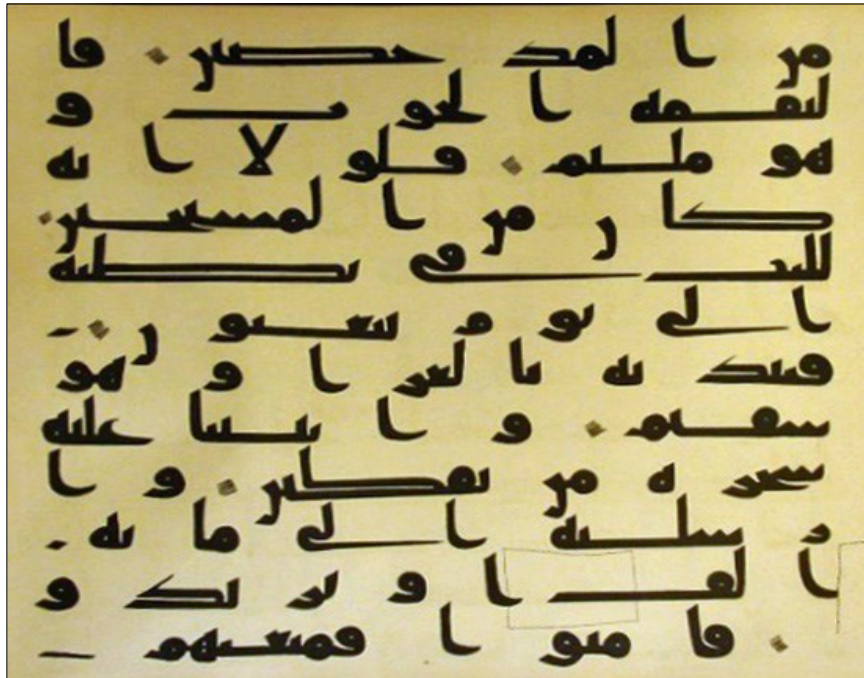 من المدحضين فا
لتقمه الحوت و
هو مليم فلولا انه
كان من المسبحين
للبث في بطنه
الى يوم يبعثون
فنبذنه بالعرا و هو
سقيم و انبتنا عليه
شجره من يقطين و ا
رسلنه الى مايه
الف او يزيدو
فامنوا فمتعنهم